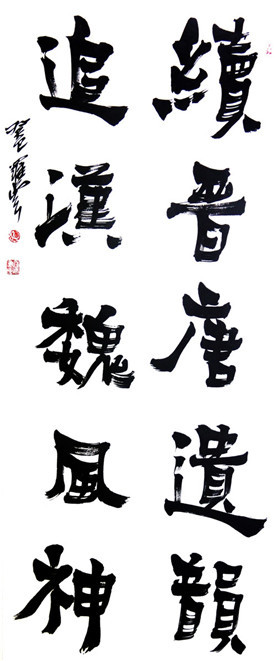 續晉唐遺韻
追漢魏風神